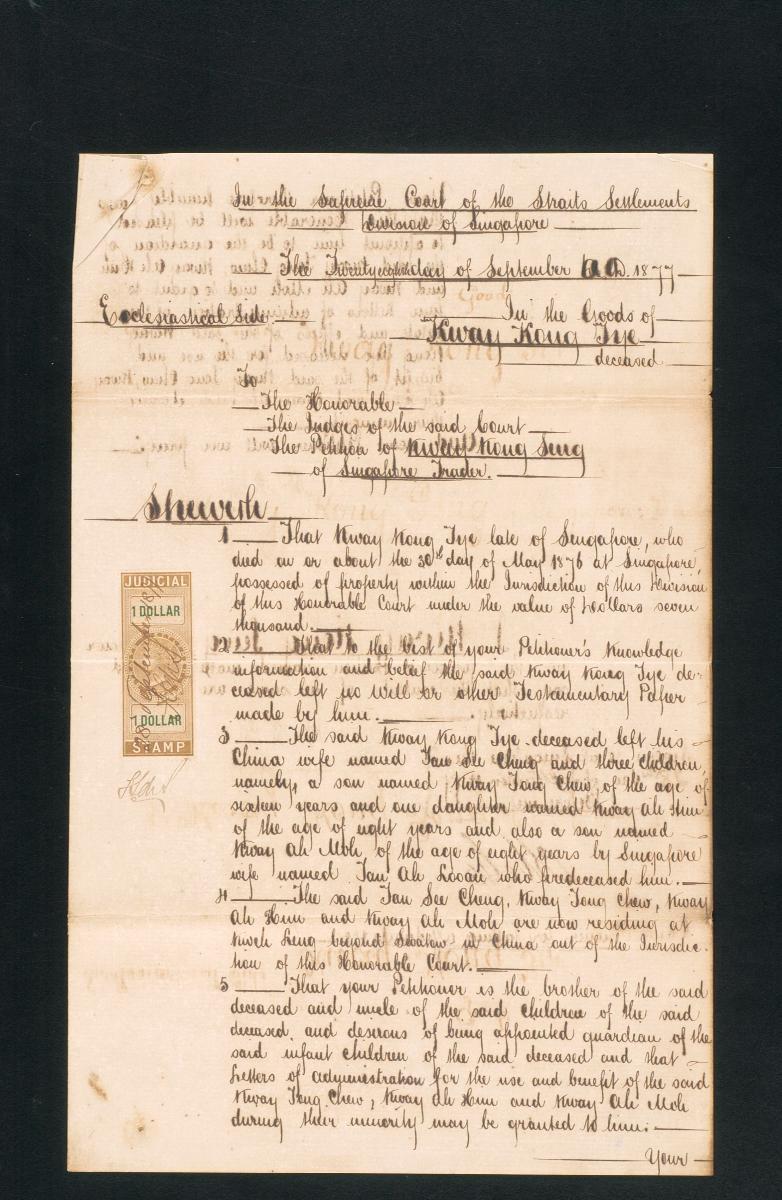 In the Supreme Court of the Straits Settlements
Division of Singapore
The Twentyeighth day of September A.D. 1877
Ecclesiastical Side
In the Goods of
Kway Kong Tye
deceased
To
The Honorable
The Judges of the said Court
The Petition of Kway Kong Seng
of Singapore Trader.
Sheweth
1 That Kway Kong Tye late of Singapore, who
died on or about the 30th day of May 1876 at Singapore,
possessed of property within the Jurisdiction of this Division
of this Honorable Court under the value of Dollars seven
thousand.
2 That to the best of your Petitioner's Knowledge
information and belief the said Kway Kong Tye de-
ceased left no Will or other Testamentary Paper
made by him.
3 The said Kway Kong Tye deceased left his
China wife named Tan See Cheng and three children,
namely, a son named Kway Tong Chew, of the age of
sixteen years and one daughter named Kway Ah Him
of the age of eight years and also a son named
Kway Ah Moh of the age of eight years by Singapore
wife named Tan Ah Looan who predeceased him.
4 The said Tan See Cheng, Kway Tong Chew, Kway
Ah Him and Kway Ah Moh are now residing at
Kweh Leng beyond Swatow in China out of the Jurisdic-
tion of this Honorable Court.
5 That your Petitioner is the brother of the said
deceased and uncle of the said children of the said
deceased and desirous of being appointed guardian of the
said infant children of the said deceased and that
Letters of administration for the use and benefit of the said
Kway Tong Chew, Kway Ah Him and Kway Ah Moh
during their minority may be granted to him.
Your
JUDICIAL
1 DOLLAR
1 DOLLAR
STAMP